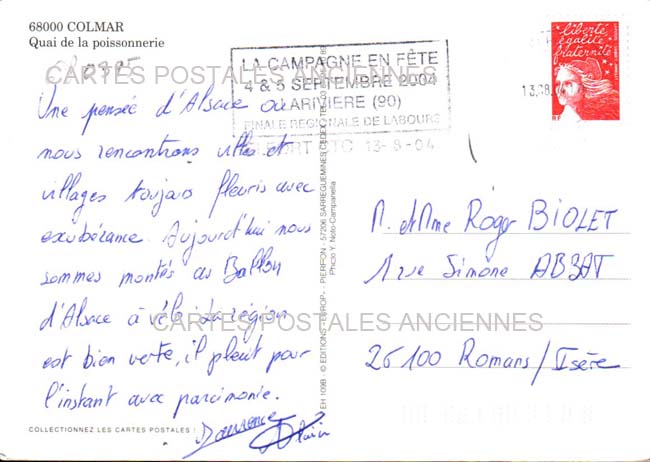 68000 COLMAR
Quai de la poissonnerie
CARTES POSTALES ANCIENNES
LA CAMPAGNE EN FÊTE
4 & 5 SEPTEMBRE 2004
LARIVIERE (90)
FINALE REGIONALE DE LABOURS
BELFORT CTC 13-8-04
liberté
égalité
fraternité
RF
13.08.
Une pensée d'Alsace où
nous rencontrons villes et
villages toujours fleuris avec
exubérance. Aujourd'hui nous
sommes montés au Ballon
d'Alsace à vélo. La région
est bien verte, il pleut pour
l'instant avec parcimonie.
Laurence Alain
CARTES POSTALES ANCIENNES
M. et Mme Roger BIOLET
1 rue Simone ABBAT
26100 Romans/Isère
EH 109B - © EDITIONS - EUROP - PIERRON - 57206 SARREGUEMINES CEDEX
Photo Y. Noto-Campanella
COLLECTIONNEZ LES CARTES POSTALES !